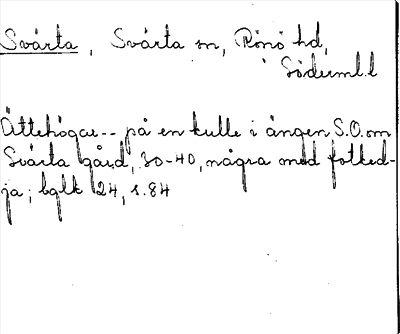 Svärta, Svärta sn, Rönö hd,
Söderml.l
Ättehögar -- på en kulle i ängen S.O. om
Svärta gård, 30-40, några med fotked-
ja; bglk 24, s. 84